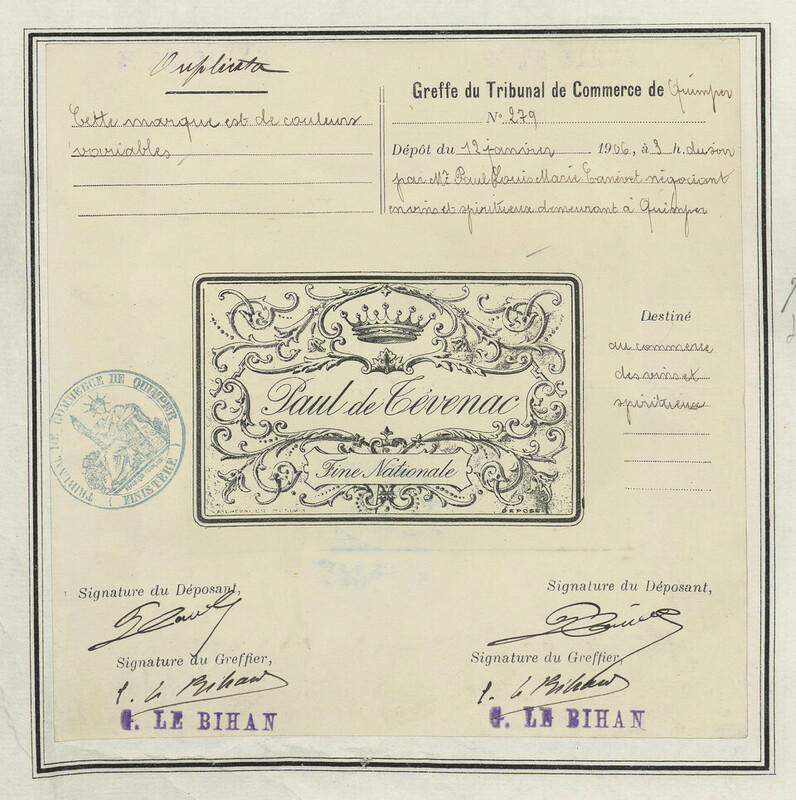 Duplicata
Cette marque est de couleurs
variables
Greffe du Tribunal de Commerce de Quimper
N° 279
Dépôt du 12 janvier 1906, à 3 h. du soir
par Mr Paul Louis Marie Canévet négociant
en vins et spiritueux demeurant à Quimper
Paul de Cévenac
Fine Nationale
DÉPOSÉ
Destiné
au commerce
des vins et
spiritueux
TRIBUNAL DE COMMERCE DE QUIMPER
( FINISTÈRE )
Signature du Déposant,
Signature du Greffier,
G. Le Bihan
G. LE BIHAN
Signature du Déposant,
Signature du Greffier,
G. Le Bihan
G. LE BIHAN